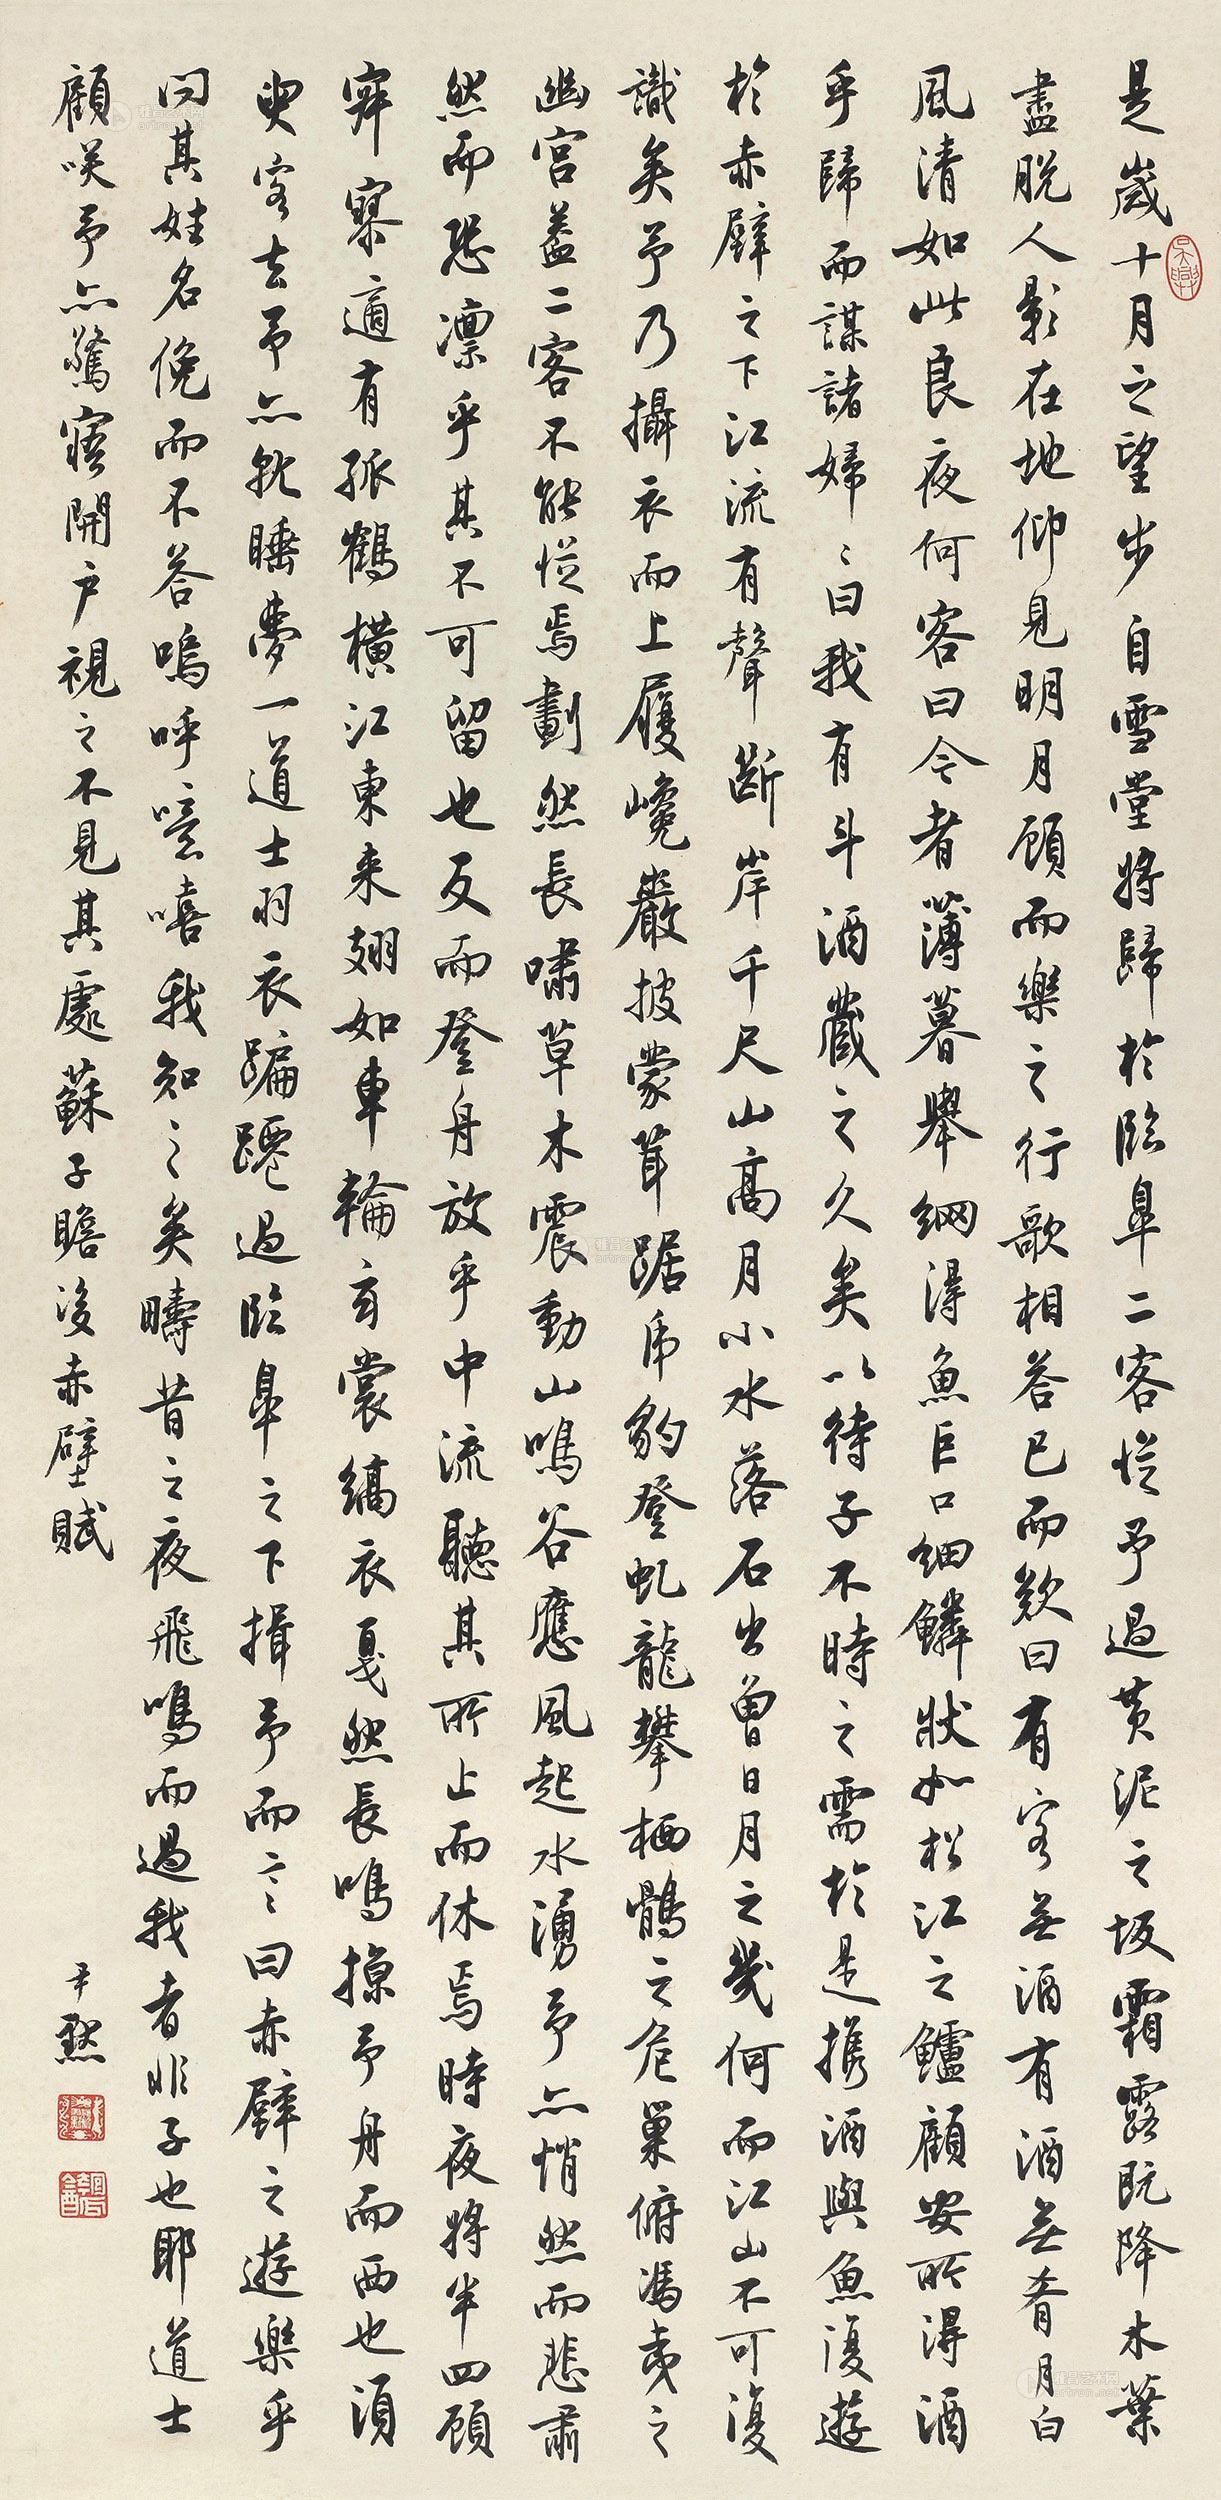 是歲十月之望步自雪堂將歸於臨皋二客從予過黃泥之坂霜露既降木葉
盡脫人影在地仰見明月顧而樂之行歌相答已而歎曰有客無酒有酒無肴月白
風清如此良夜何客曰今者薄暮舉網得魚巨口細鱗狀如松江之鱸顧安所得酒
乎歸而謀諸婦〻曰我有斗酒藏之久矣以待子不時之需於是攜酒與魚復遊
於赤壁之下江流有聲斷岸千尺山高月小水落石出曾日月之幾何而江山不可復
識矣予乃攝衣而上履巉巖披蒙茸踞虎豹登虬龍攀栖鶻之危巢俯馮夷之
幽宮蓋二客不能從焉劃然長嘯草木震動山鳴谷應風起水湧予亦悄然而悲肅
然而恐凜乎其不可留也反而登舟放乎中流聽其所止而休焉時夜將半四顧
寂寥適有孤鶴橫江東來翅如車輪玄裳縞衣戛然長鳴掠予舟而西也須
臾客去予亦就睡夢一道士羽衣蹁躚過臨皋之下揖予而言曰赤壁之遊樂乎
問其姓名俛而不答嗚呼噫嘻我知之矣疇昔之夜飛鳴而過我者非子也耶道士
顧笑予亦驚寤開戶視之不見其處蘇子瞻後赤壁賦
尹默
吳興